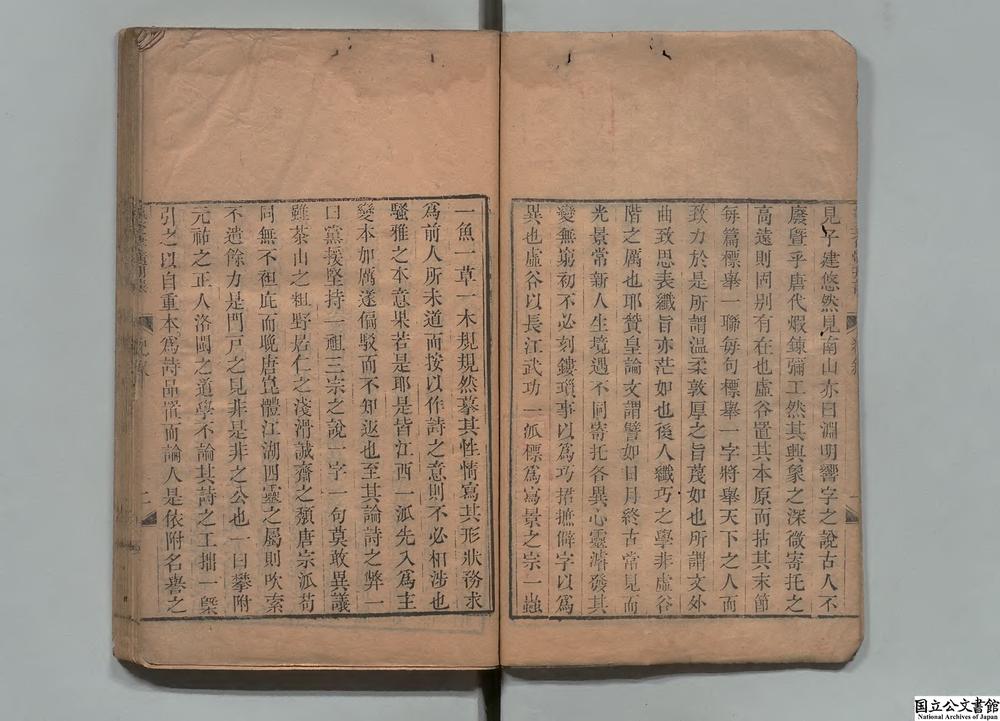 見子建悠然見南山亦曰淵明響字之說古人不
廢暨乎唐代煅鍊彌工然其興象之深微寄托之
高遠則固别有在也虛谷置其本原而拈其末節
每篇標舉一聯每句標舉一字將舉天下之人而
致力於是所謂溫柔敦厚之旨蔑如也所謂文外
曲致思表纖旨亦茫如也後人纖巧之學非虛谷
階之厲也耶贊皇論文謂譬如日月終古常見而
光景常新人生境遇不同寄托各異心靈濬發其
變無窮初不必刻鏤瑣事以爲巧捃摭僻字以爲
異也虛谷以長江武功一派標爲寫景之宗一蟲
一魚一草一木規規然摹其性情寫其形狀務求
爲前人所未道而按以作詩之意則不必相涉也
騷雅之本意果若是耶是皆江西一派先入爲主
變本加厲遂偏駁而不知返也至其論詩之弊一
曰黨援堅持一祖三宗之說一字一句莫敢異議
雖茶山之粗野居仁之淺滑誠齋之頽唐宗派苟
同無不袒庇而晚唐崑體江湖四靈之屬則吹索
不遺餘力是門戶之見非是非之公也一曰攀附
元祐之正人洛閩之道學不論其詩之工拙一槩
引之以自重本爲詩品置而論人是依附名譽之
二
国立公文書館
National Archives of Japan